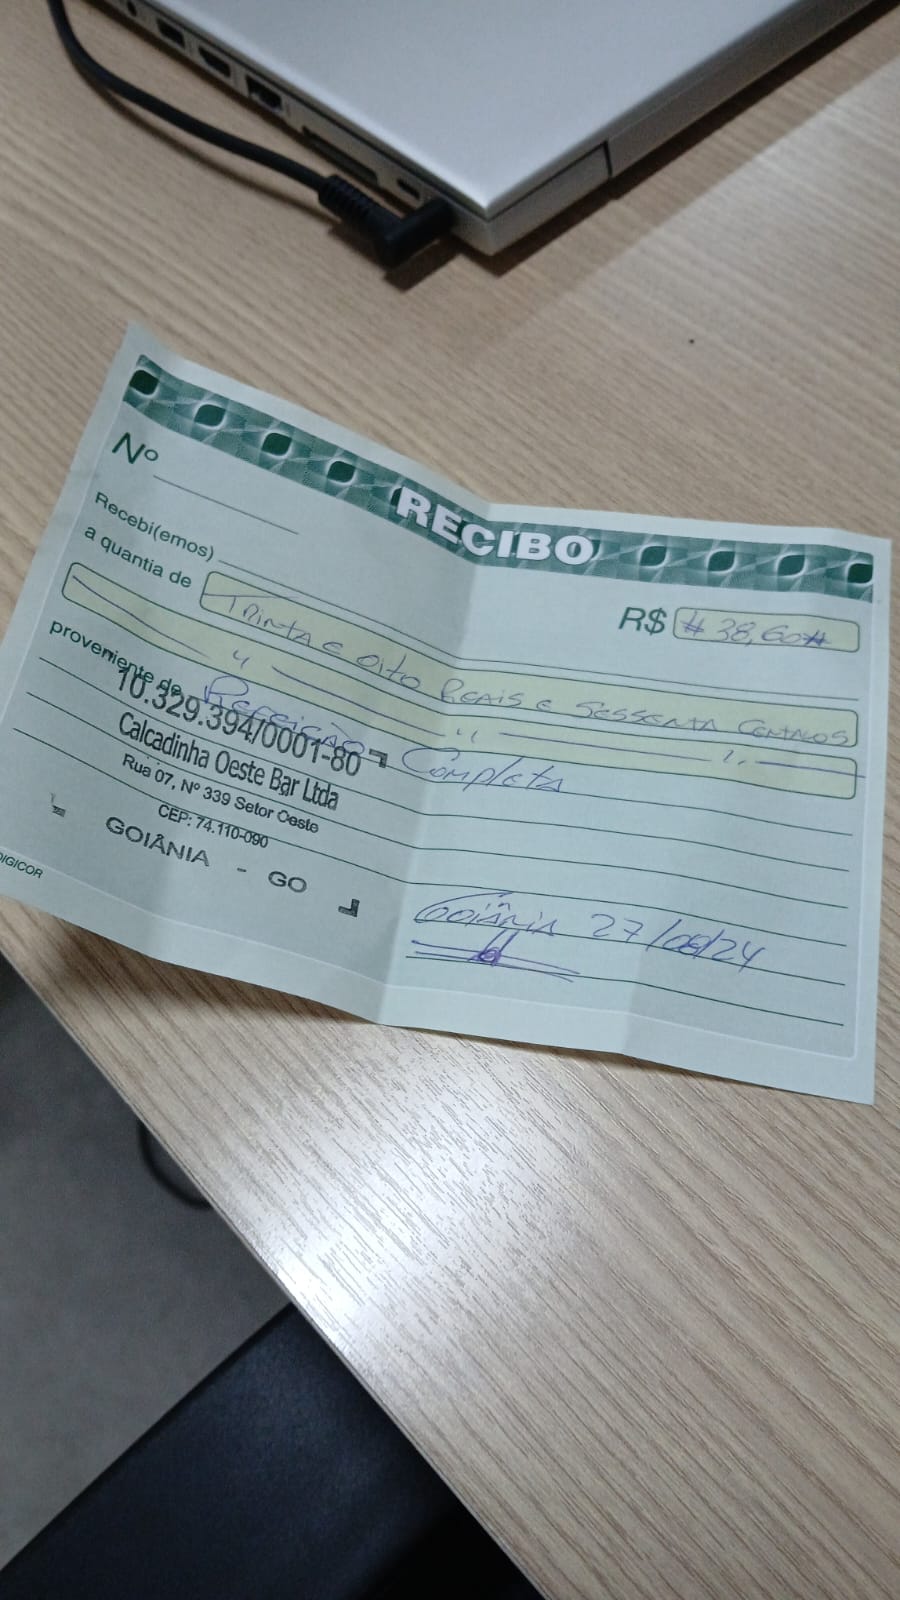 RECIBO
Nº
R$ # 38,60 #
Recebi(emos)
a quantia de Trinta e oito Reais e sessenta Centavos
proveniente de Refeição Completa
10.329.394/0001-80
Calcadinha Oeste Bar Ltda
Rua 07, Nº 339 Setor Oeste
CEP: 74.110-090
GOIÂNIA - GO
Goiânia 27/08/24
DIGICOR